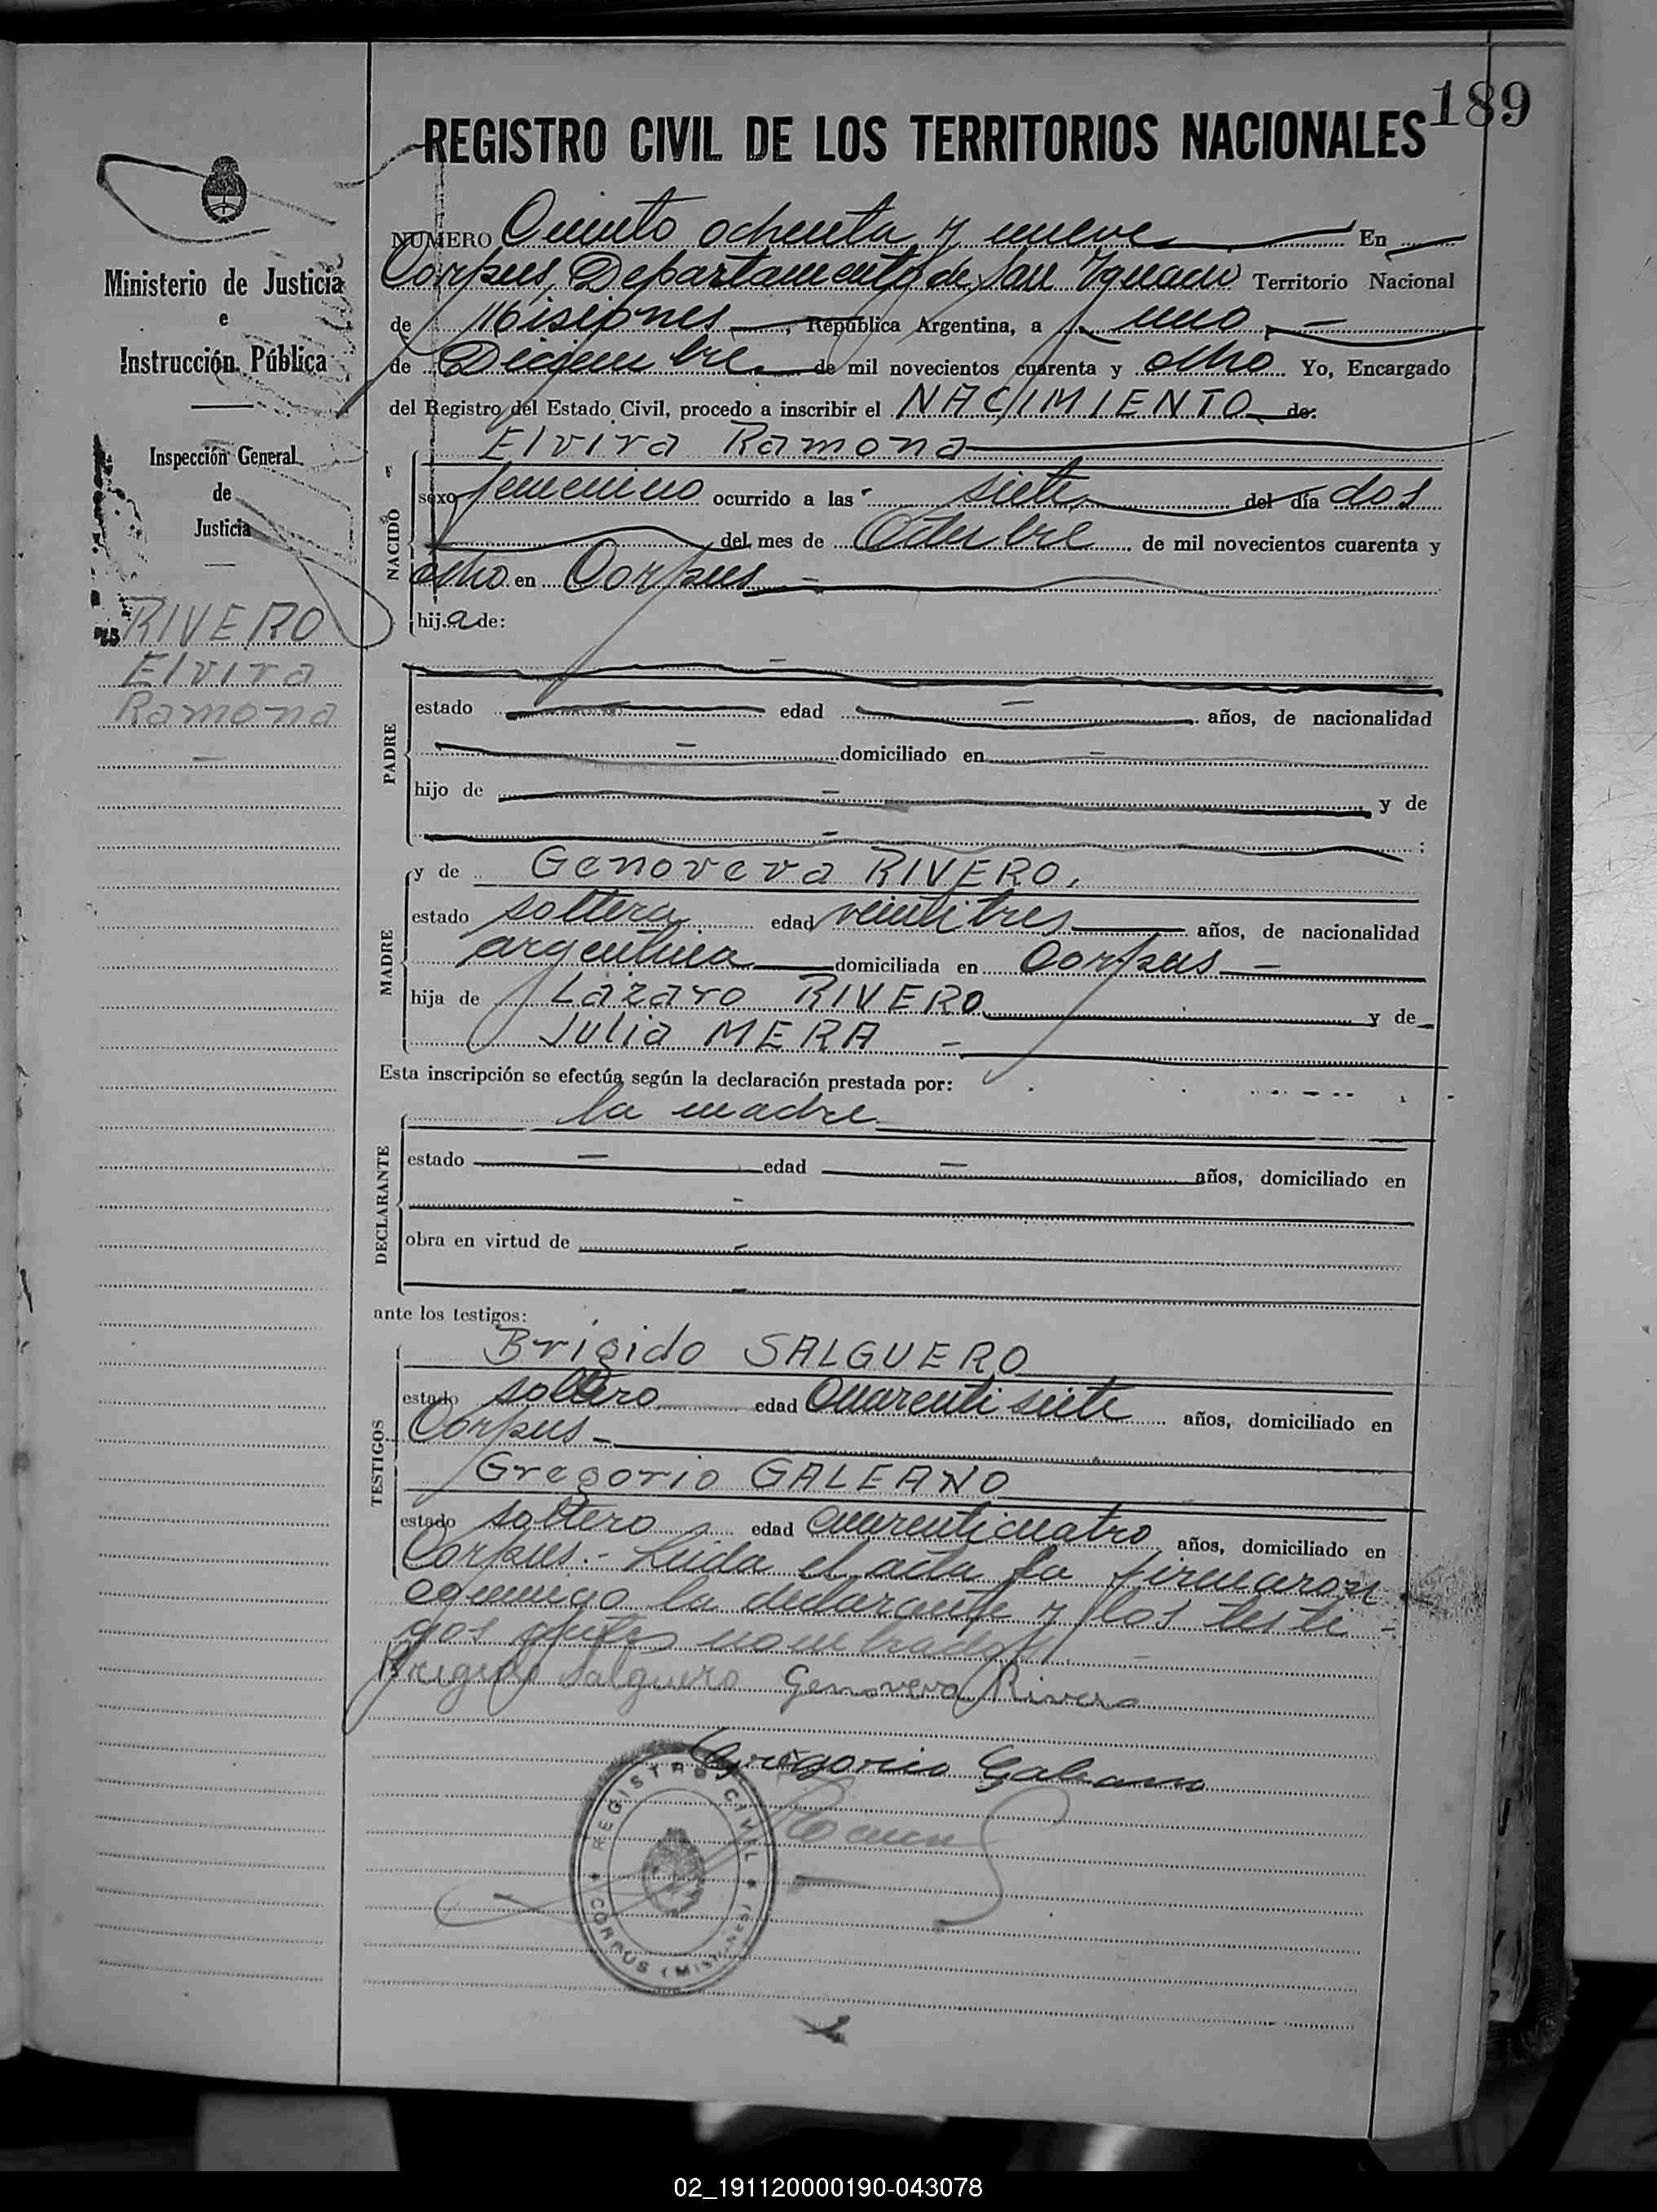 189
REGISTRO CIVIL DE LOS TERRITORIOS NACIONALES
Ministerio de Justicia
e
Instrucción Pública
Inspección General
de
Justicia
RIVERO
Elvira
Ramona
NUMERO Ciento ochenta y nueve En
Corpus, Departamento de San Ygnacio Territorio Nacional
de Misiones, República Argentina, a uno
de Diciembre de mil novecientos cuarenta y ocho Yo, Encargado
del Registro del Estado Civil, procedo a inscribir el NACIMIENTO de:
Elvira Ramona
NACIDO
sexo femenino ocurrido a las siete del día dos
del mes de Octubre de mil novecientos cuarenta y
ocho en Corpus
hija de:
PADRE
estado edad años, de nacionalidad
domiciliado en
hijo de y de
;
MADRE
y de Genoveva RIVERO,
estado soltera edad veintitres años, de nacionalidad
argentina domiciliada en Corpus
hija de Lázaro RIVERO y de
Julia MERA
Esta inscripción se efectúa según la declaración prestada por:
DECLARANTE
la madre
estado edad años, domiciliado en
obra en virtud de
ante los testigos:
TESTIGOS
Brigido SALGUERO
estado soltero edad Cuarentisiete años, domiciliado en
Corpus.-
Gregorio GALEANO
estado soltero edad cuarenticuatro años, domiciliado en
Corpus.- Leida el acta la firmaron
conmigo la declarante y los testi-
gos antes nombrados.
Brigido Salguero Genoveva Rivero
Gregorio Galeano
REGISTRO CIVIL
CORPUS (MISIONES)
02_191120000190-043078